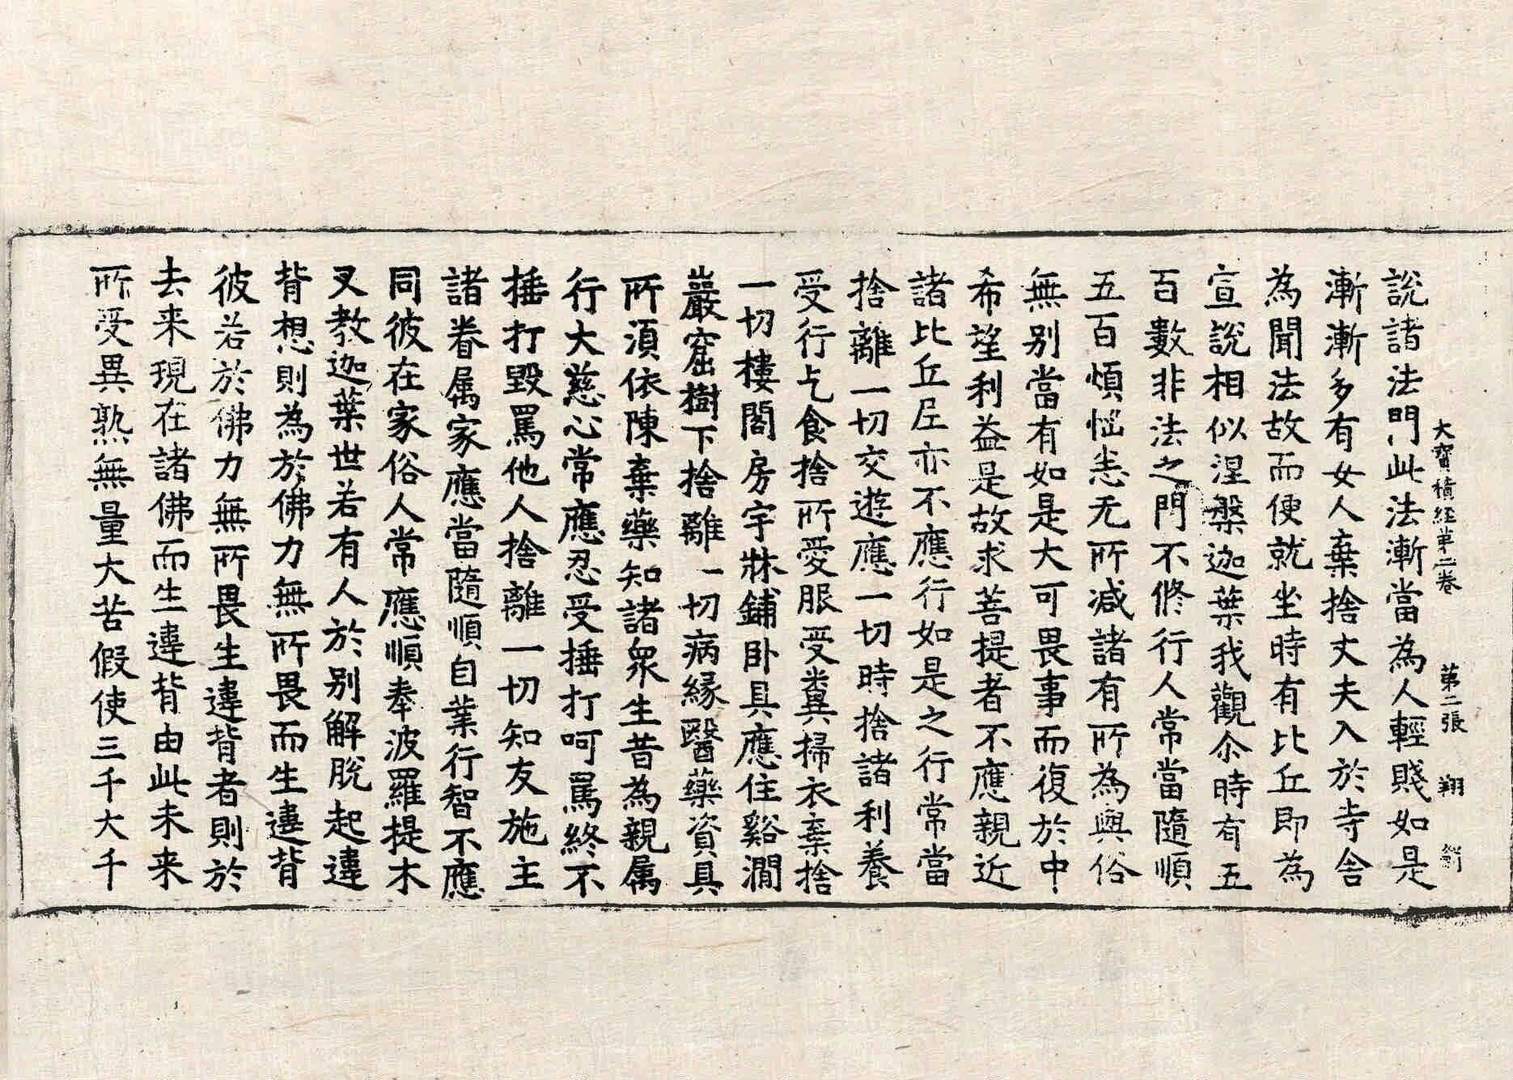 大寶積經第二卷　第二張　翔
說諸法門此法漸當為人輕賤如是
漸漸多有女人棄捨丈夫入於寺舍
為聞法故而便就坐時有比丘即為
宣說相似涅槃迦葉我觀尒時有五
百數非法之門不修行人常當隨順
五百煩惱恚无所減諸有所為與俗
無别當有如是大可畏事而復於中
希望利益是故求菩提者不應親近
諸比丘𡰱亦不應行如是之行常當
捨離一切交遊應一切時捨諸利養
受行乞食捨所愛服受糞掃衣棄捨
一切樓閣房宇牀鋪卧具應住谿澗
巖窟樹下捨離一切病緣醫藥資具
所湏依陳棄藥知諸衆生昔為親属
行大慈心常應忍受捶打呵罵終不
捶打毀罵他人捨離一切知友施主
諸眷属家應當隨順自業行智不應
同彼在家俗人常應順奉波羅提木
叉教迦葉世若有人於别解脫起違
背想則為於佛力無所畏而生違背
彼若於佛力無所畏生違背者則於
去来現在諸佛而生違背由此未来
所受異熟無量大苦假使三千大千